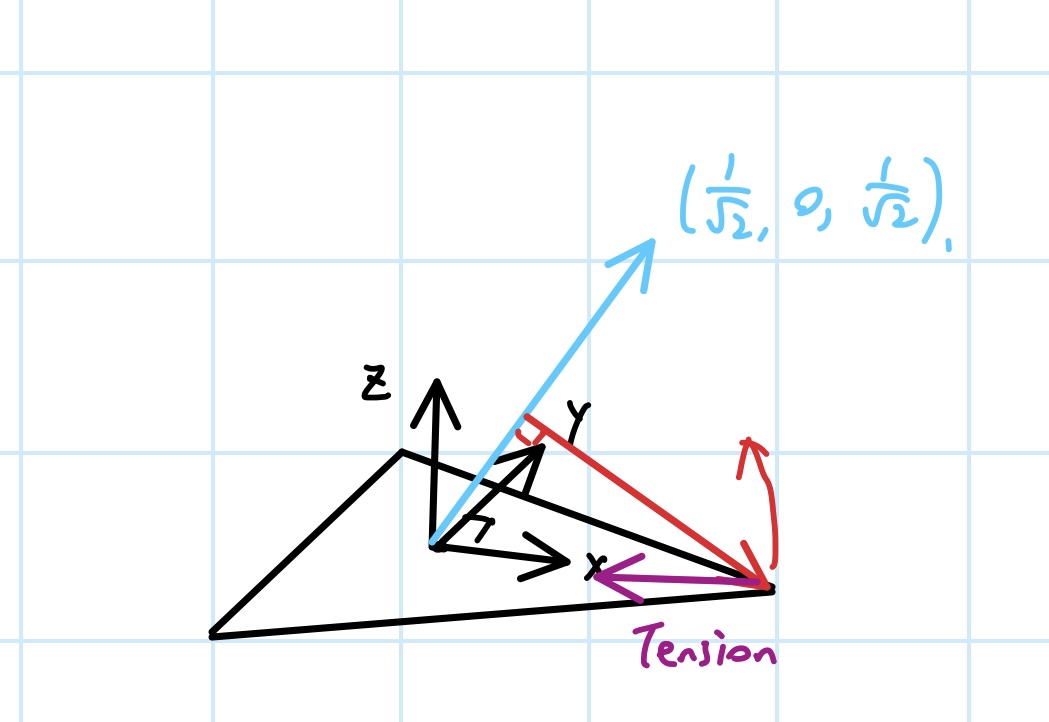 (1/√2, 0, 1/√2).
z
y
x
Tension